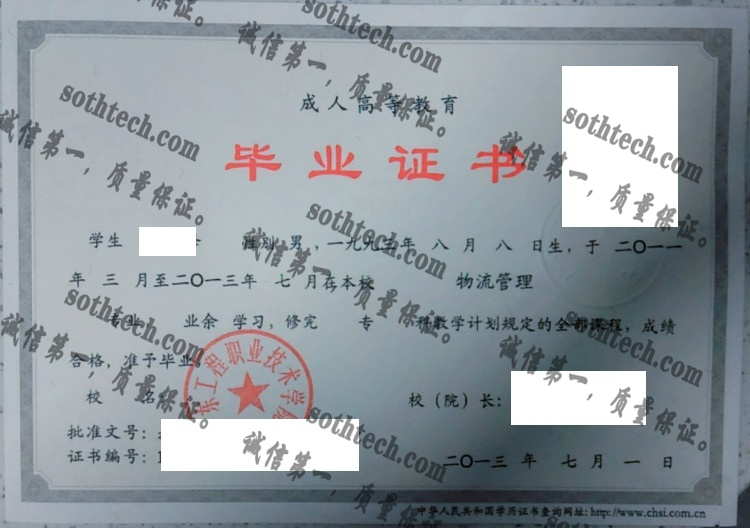 成人高等教育
毕业证书
学生 性别 男，一九九三年 八 月 八 日生，于 二〇一一
年 三 月至二〇一三年 七 月在本校 物流管理
专业 业余 学习，修完 专 科教学计划规定的全部课程，成绩
合格，准予毕业。
校 名
东工程职业技术学院
校（院）长：
批准文号：
证书编号：
二〇一三 年 七 月 一 日
中华人民共和国学历证书查询网址：http://www.chsi.com.cn
sothtech.com
诚信第一，质量保证。
sothtech.com
诚信第一，质量保证。
sothtech.com
诚信第一，质量保证。
sothtech.com
诚信第一，质量保证。
sothtech.com
诚信第一，质量保证。
sothtech.com
诚信第一，质量保证。
sothtech.com
诚信第一，质量保证。